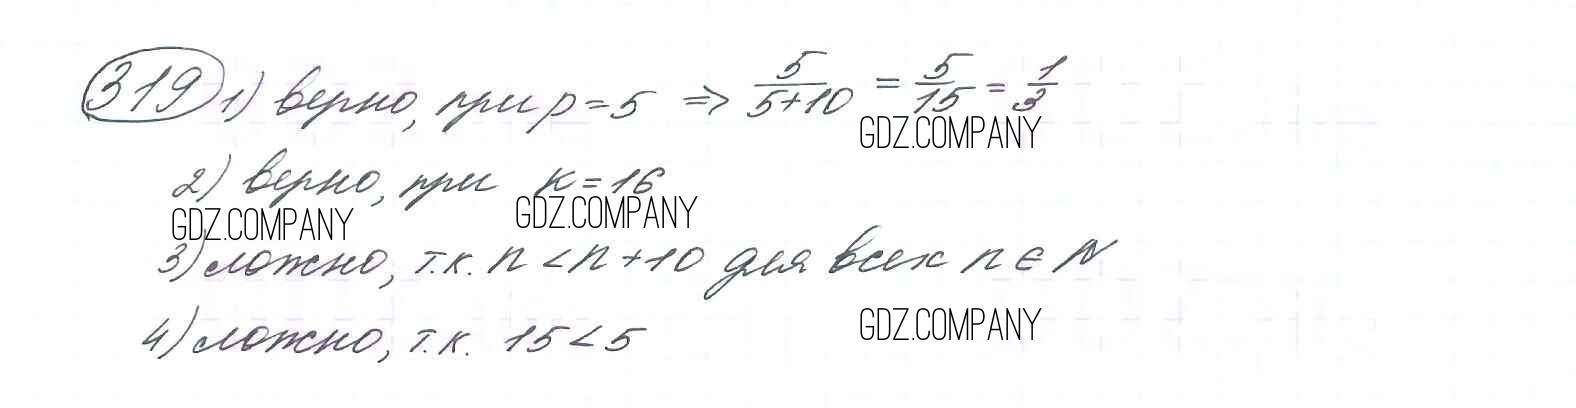 319 1) верно, при p = 5 => 5/(5+10) = 5/15 = 1/3
GDZ.COMPANY
2) верно, при к = 16
GDZ.COMPANY GDZ.COMPANY
3) ложно, т.к. n < n + 10 для всех n ∈ N
GDZ.COMPANY
4) ложно, т.к. 15 < 5